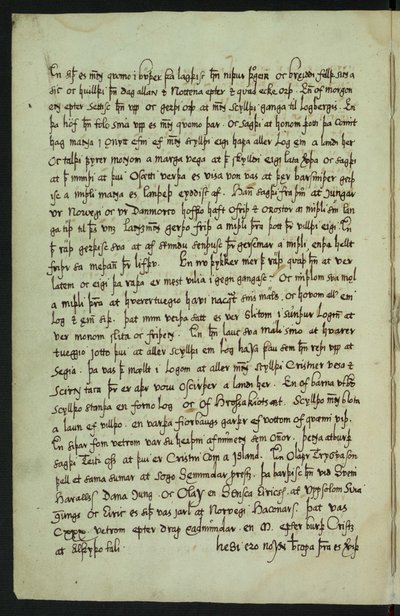 En siþ es meɴ qvomo i buþer þa lagþisc hɴ niþur þorgeir oc breidde feld siɴ a
sic oc huilþi þɴ dag allan oc Nottena epter oc qvaþ ecke orþ. En of morgon
eɴ epter settisc hɴ upp oc gerþi orþ at meɴ scylldi ganga til logbergis. En
þa hof hɴ tolo sina upp es meɴ qvomo þar. oc sagþi at honom þotti þa comit
hag manna i onyt efni ef meɴ scylldi eigi hafa aller log ein a landi her
oc talþi fyrer monom a marga vega at þ scylldi eigi lata verþa oc sagþi
at þ mundi at þvi osætti verþa es visa von vas at þær barsmiþer gerþ
isc a miþli manna es landeþ eyddisc af. Hann sagþi fra þvi at kunungar
ur Norvegi oc ur Danmorco hofþo haft ofriþ oc orostor a miþli sin lan
ga tiþ til þess unz landzmeɴ gerþo friþ a miþli þeira þott þeir villdi eigi. En
þ raþ gerþisc sva at af stundu sendusc þeir gersemar a miþli enda hellt
friþr sa meþan þeir lifþo. En nu þykker mer þ raþ qvaþ hɴ at ver
latem oc eigi þa raþa er mest vilia i gegn gangasc. Oc miþlom sva mal
a miþli þeira at hverertveggio hafi nacqvat sins mals. oc hofom aller ein
log oc eiɴ siþ. þat mon verþa satt es ver slitom i sundur login at
ver monom slita oc friþeɴ. En hɴ lauc sva mali sino at hvarer
tveggio jotto þvi at aller scylldi ein log hafa þau sem hɴ reþi upp at
segia. þa vas þ mællt i logom at aller meɴ scylldi Cristner vesa oc
scirn taca þeir er aþr voru oscirþer a landi her. En of barna utburþ
scylldo standa en forno log oc of hrossakiotsat. Scylldo meɴ blota
a laun ef villdo. en varþa fiorbaugs garþr ef vottom of qvæmi viþ.
En siþar fom vetrom var su heiþni af numin sem onnor. þenna atburþ
sagþi Teitr oss at þvi er Cristni com a Island. En Olafr Tryggvason
fell et sama sumar at sogo Sæmundar prestz. þa barþisc hɴ viþ Svein
Haralldz son Dana kunung. oc Olaf en Sænsca Eirics son at Uppsolom Svia
kunungs oc Eiric es siþan vas jarl at Norvegi Haconar son. þat vas
CXXX. vetrom epter drap Eadmundar. en M. epter burþ Cristz
at alþyþo tali.